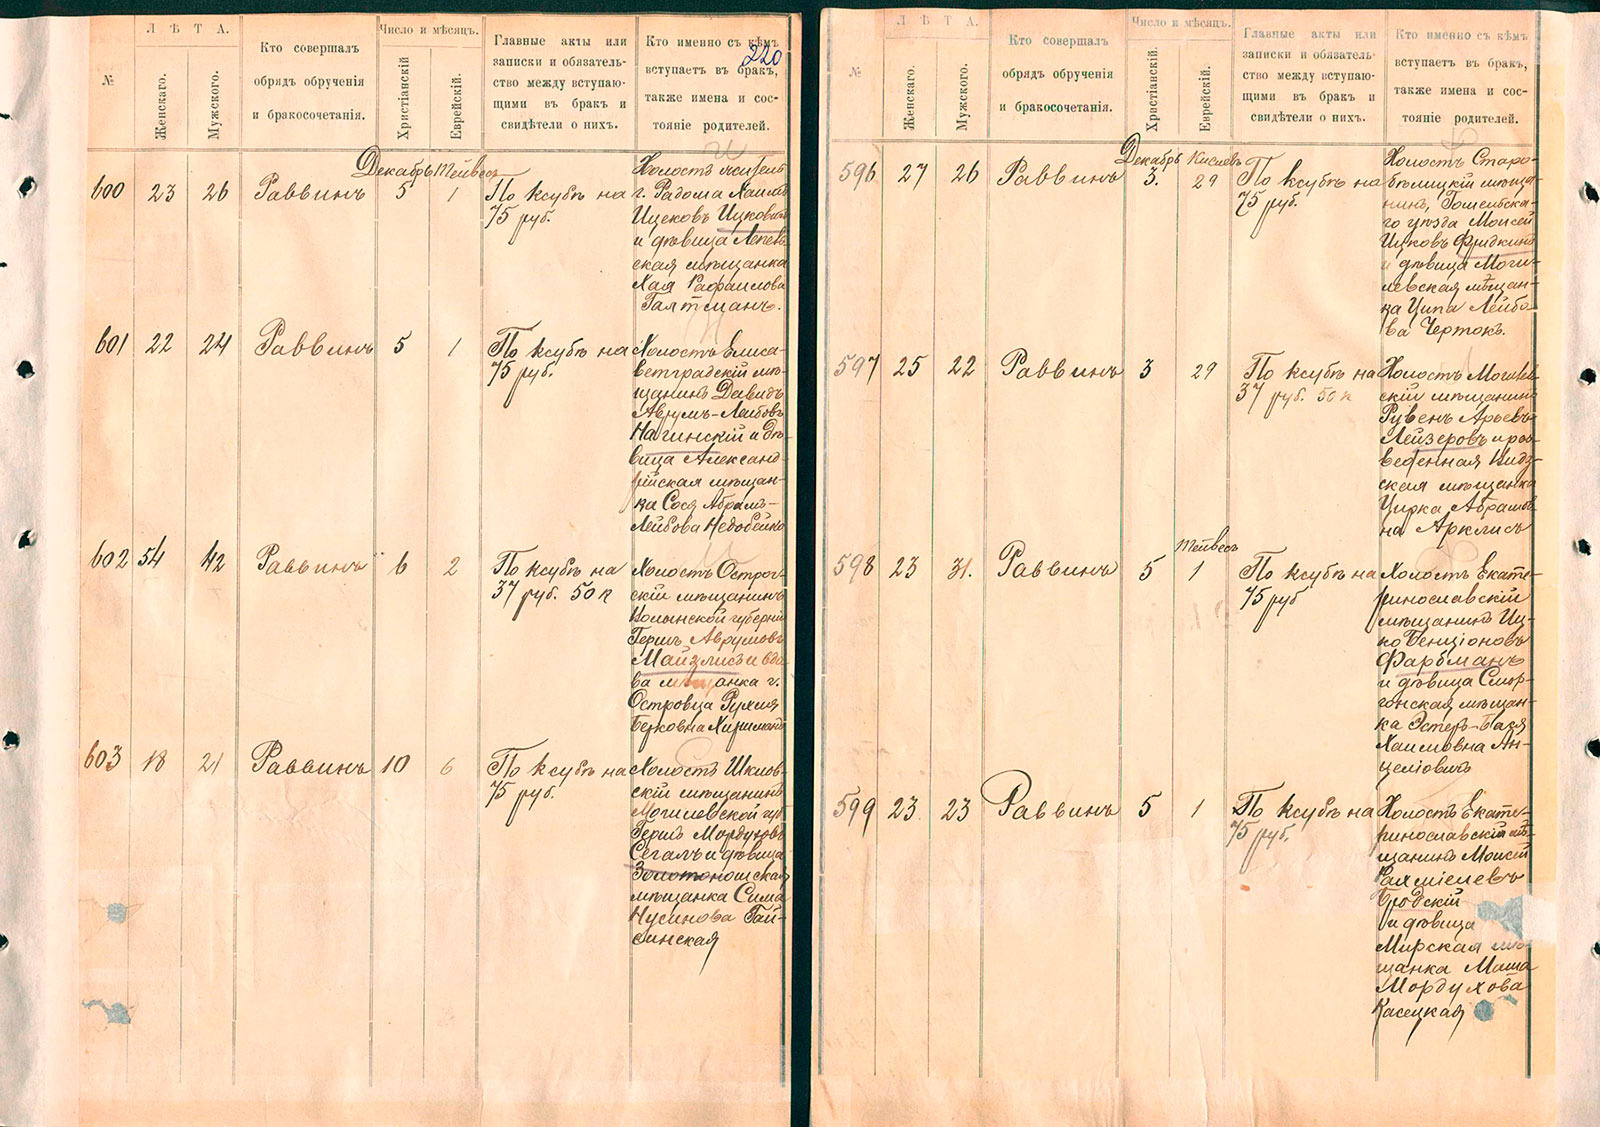 Л Ѣ Т А.
Число и мѣсяцъ.
№
Женскаго.
Мужского.
Кто совершалъ
обрядъ обрученія
и бракосочетанія.
Христіанскій
Еврейскій.
Главные акты или
записки и обязатель-
ство между вступаю-
щими въ бракъ и
свидѣтели о нихъ.
Кто именно съ кѣмъ
вступаетъ въ бракъ,
также имена и сос-
тояніе родителей.
220
Декабрь Тейвесъ
600 23 26 Раввинъ 5 1
По ксубѣ на
75 руб.
Холостъ житель
г. Радома Хаимъ
Ицековъ Ицковичъ
и дѣвица Лепель
ская мѣщанка
Хая Рафаилова
Галтманъ.
601 22 24 Раввинъ 5 1
По ксубѣ на
75 руб.
Холостъ Елиса-
ветградскій мѣ-
щанинъ Давидъ
Аврумъ-Лейбовъ
Нагинскій и дѣ-
вица Александ-
рійская мѣщан-
ка Сося Абрамъ-
Лейбова Недобейко
602 54 42 Раввинъ 6 2
По ксубѣ на
37 руб. 50 к
Холостъ Острог-
скій мѣщанинъ
Волынской губерніи
Гершъ Аврумовъ
Майзлисъ и вдо
ва мѣщанка г.
Островца Рухля
Берковна
603 18 21 Раввинъ 10 6
По ксубѣ на
75 руб.
Холостъ Шклов-
скій мѣщанинъ
Могилевской губ
Гершъ Мордуховъ
Сегалъ и дѣвица
Золотоношская
мѣщанка Сима
Нусинова Гай-
синская
Л Ѣ Т А.
Число и мѣсяцъ.
№
Женскаго.
Мужского.
Кто совершалъ
обрядъ обрученія
и бракосочетанія.
Христіанскій.
Еврейскій.
Главные акты или
записки и обязатель-
ство между вступаю-
щими въ бракъ и
свидѣтели о нихъ.
Кто именно съ кѣмъ
вступаетъ въ бракъ,
также имена и сос-
тояніе родителей.
Декабрь Кислевъ
596 27 26 Раввинъ 3. 29
По ксубѣ на
75 руб.
Холостъ Старо-
бѣлицкій мѣща-
нинъ, Гомельска-
го уѣзда Моисей
Ицковъ Фридкинъ
и дѣвица Моги-
левская мѣщан-
ка Ципа Лейбо-
ва Чертокъ.
597 25 22 Раввинъ 3 29
По ксубѣ на
37 руб. 50 к
Холостъ Могилев
скій мѣщанинъ
Рувенъ Арьевъ
Лейзеровъ и раз-
веденная Видз-
ская мѣщанка
Цирка Абрамов
на Арклисъ
Тейвесъ
598 23 31. Раввинъ 5 1
По ксубѣ на
75 руб
Холостъ Екате-
ринославскій
мѣщанинъ Иц-
ко Бенціоновъ
Фарбманъ
и дѣвица Смор-
гонская мѣщан-
ка Эстеръ-Бася
Хаимовна Ан-
целіовичъ
599 23. 23 Раввинъ 5 1
По ксубѣ на
75 руб.
Холостъ Екате-
ринославскій мѣ-
щанинъ Моисей
Рахміелевъ
Бродскій
и дѣвица
Мирская мѣ-
щанка Маша
Мордухова
Касецкая